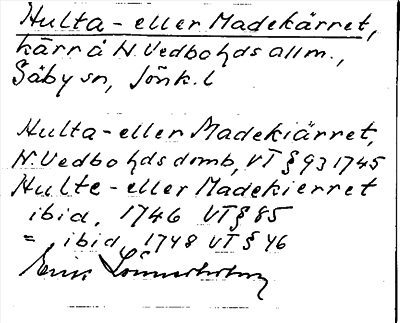 Hulta- eller Madekärret,
kärr å N. Vedbo hds allm.,
Säby sn, Jönk. l
Hulta- eller Madekiärret,
N. Vedbo hds domb, VT § 93 1745
Hulte- eller Madekierret
ibid, 1746 VT § 85
= ibid, 1748 VT § 46
Erik